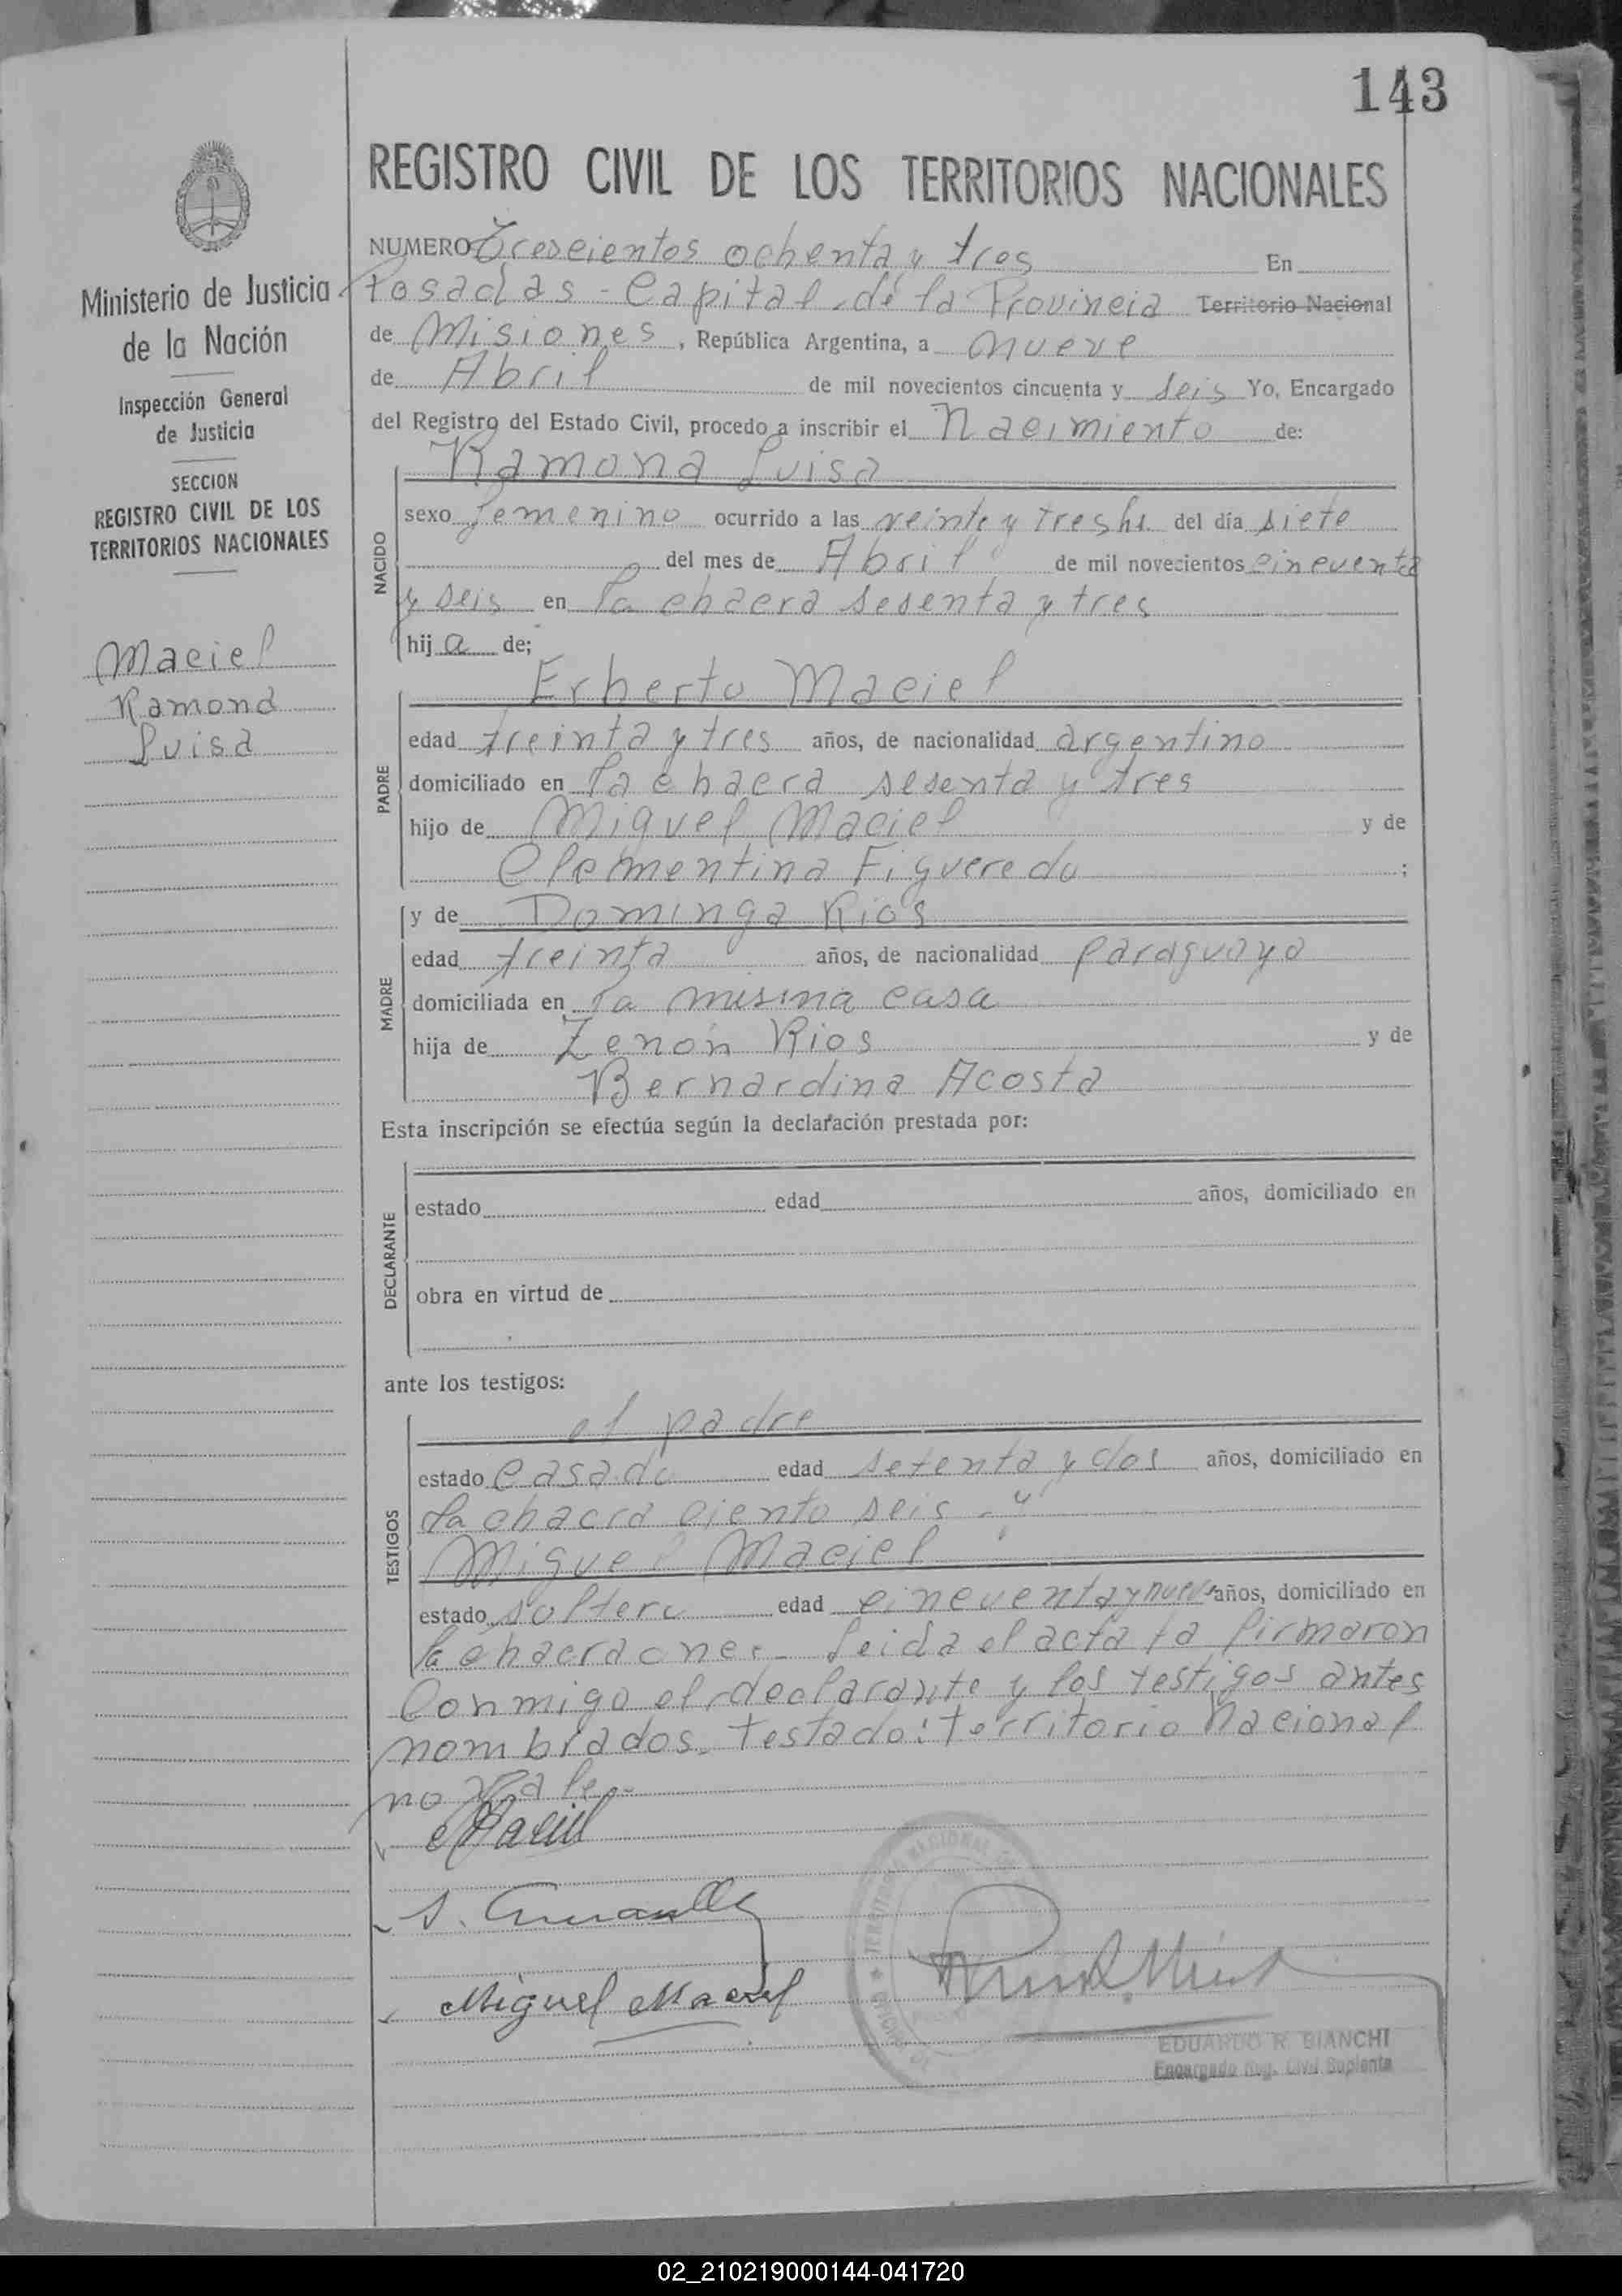 143
REGISTRO CIVIL DE LOS TERRITORIOS NACIONALES
Ministerio de Justicia
de la Nación
Inspección General
de Justicia
SECCION
REGISTRO CIVIL DE LOS
TERRITORIOS NACIONALES
Maciel
Ramona
Luisa
NUMERO Trescientos ochenta y tres En
Posadas - Capital de la Provincia Territorio Nacional
de Misiones, República Argentina, a nueve
de Abril de mil novecientos cincuenta y seis Yo, Encargado
del Registro del Estado Civil, procedo a inscribir el Nacimiento de:
NACIDO
Ramona Luisa
sexo femenino ocurrido a las veinte y tres hs. del día siete
del mes de Abril de mil novecientos cincuenta
y seis en la chacra sesenta y tres
hija de;
PADRE
Erberto Maciel
edad treinta y tres años, de nacionalidad argentino
domiciliado en la chacra sesenta y tres
hijo de Miguel Maciel y de
Clementina Figueredo;
MADRE
y de Dominga Rios
edad treinta años, de nacionalidad paraguaya
domiciliada en la misma casa
hija de Zenón Rios y de
Bernardina Acosta
Esta inscripción se efectúa según la declaración prestada por:
DECLARANTE
estado edad años, domiciliado en
obra en virtud de
ante los testigos:
TESTIGOS
el padre
estado casado edad setenta y dos años, domiciliado en
la chacra ciento seis - y
Miguel Maciel
estado soltero edad cincuenta y nueve años, domiciliado en
la chacra once. Leida el acta la firmaron
conmigo el declarante y los testigos antes
nombrados. Testado: territorio Nacional
no vale.-
Maciel
Miguel Maciel
EDUARDO R. BIANCHI
Encargado Reg. Civil Suplente
02_210219000144-041720